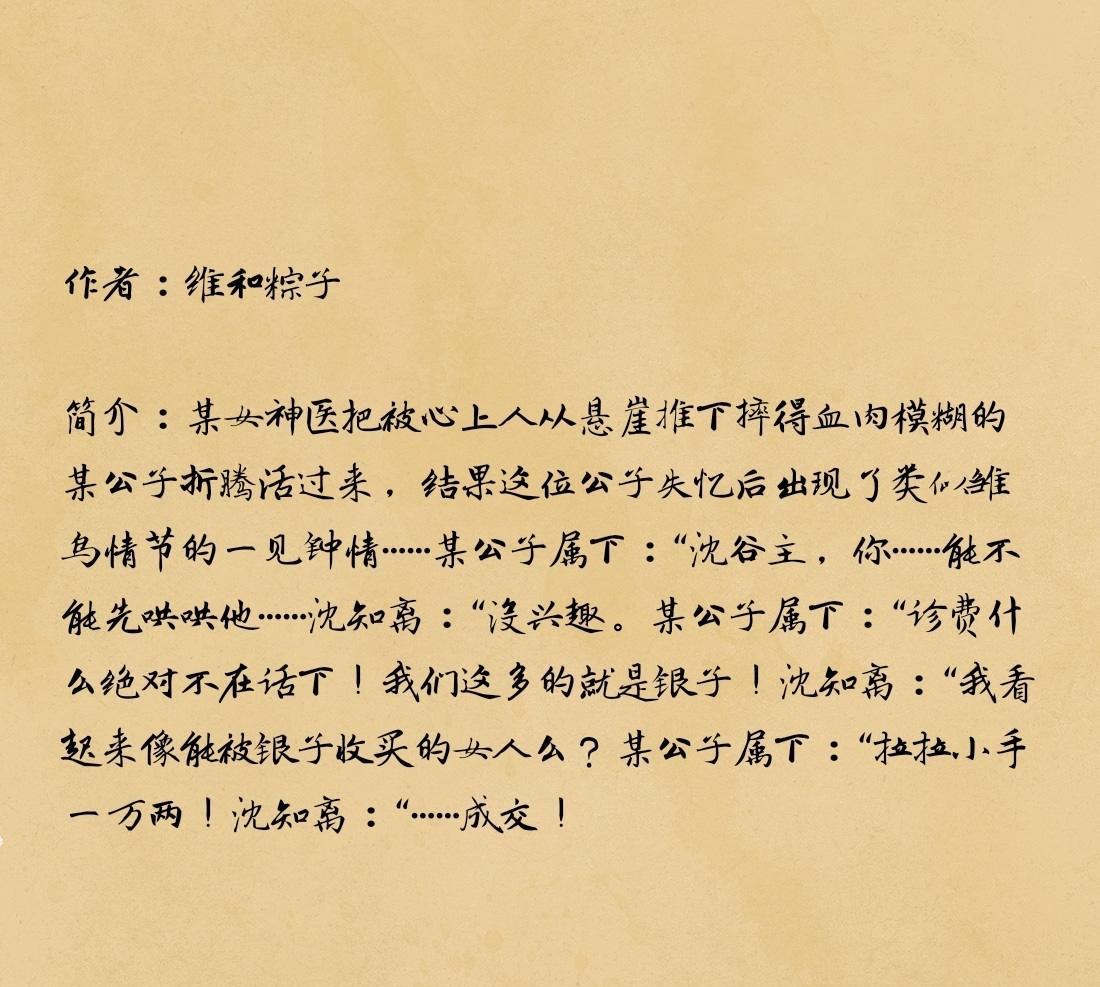 作者：维和粽子
简介：某女神医把被心上人从悬崖推下摔得血肉模糊的
某公子折腾活过来，结果这位公子失忆后出现了类似雏
鸟情节的一见钟情……某公子属下：“沈谷主，你……能不
能先哄哄他……沈知离：“没兴趣。某公子属下：“诊费什
么绝对不在话下！我们这多的就是银子！沈知离：“我看
起来像能被银子收买的女人么？某公子属下：“拉拉小手
一万两！沈知离：“……成交！